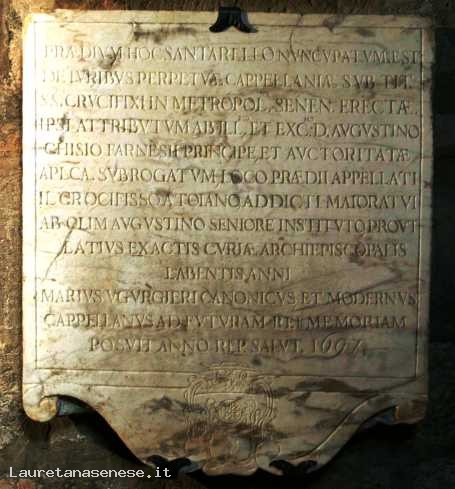 PRÆDIVM HOC SANTARELLO NVNCVPATVM EST
DE IVRIBVS PERPETVÆ CAPPELLANIÆ SVB TIT.
SS. CRVCIFIXI IN METROPOL. SENEN. ERECTÆ
IPSI ATTRIBVTVM AB ILL. ET EXC. D. AVGVSTINO
CHISIO FARNESII PRINCIPE, ET AVCTORITATÆ
APLCA. SVBROGATVM LOCO PRÆDII APPELLATI
IL CROCIFISSO A TOIANO ADDICTI MAIORATVI
AB OLIM AVGVSTINO SENIORE INSTITVTO PROVT
LATIVS EX ACTIS CVRIÆ ARCHIEPISCOPALIS
LABENTIS ANNI
MARIVS VGVRGIERI CANONICVS ET MODERNVS
CAPPELLANVS AD FVTVRAM REI MEMORIAM
POSVIT ANNO REP. SALVT. 1697
Lauretanasenese.it